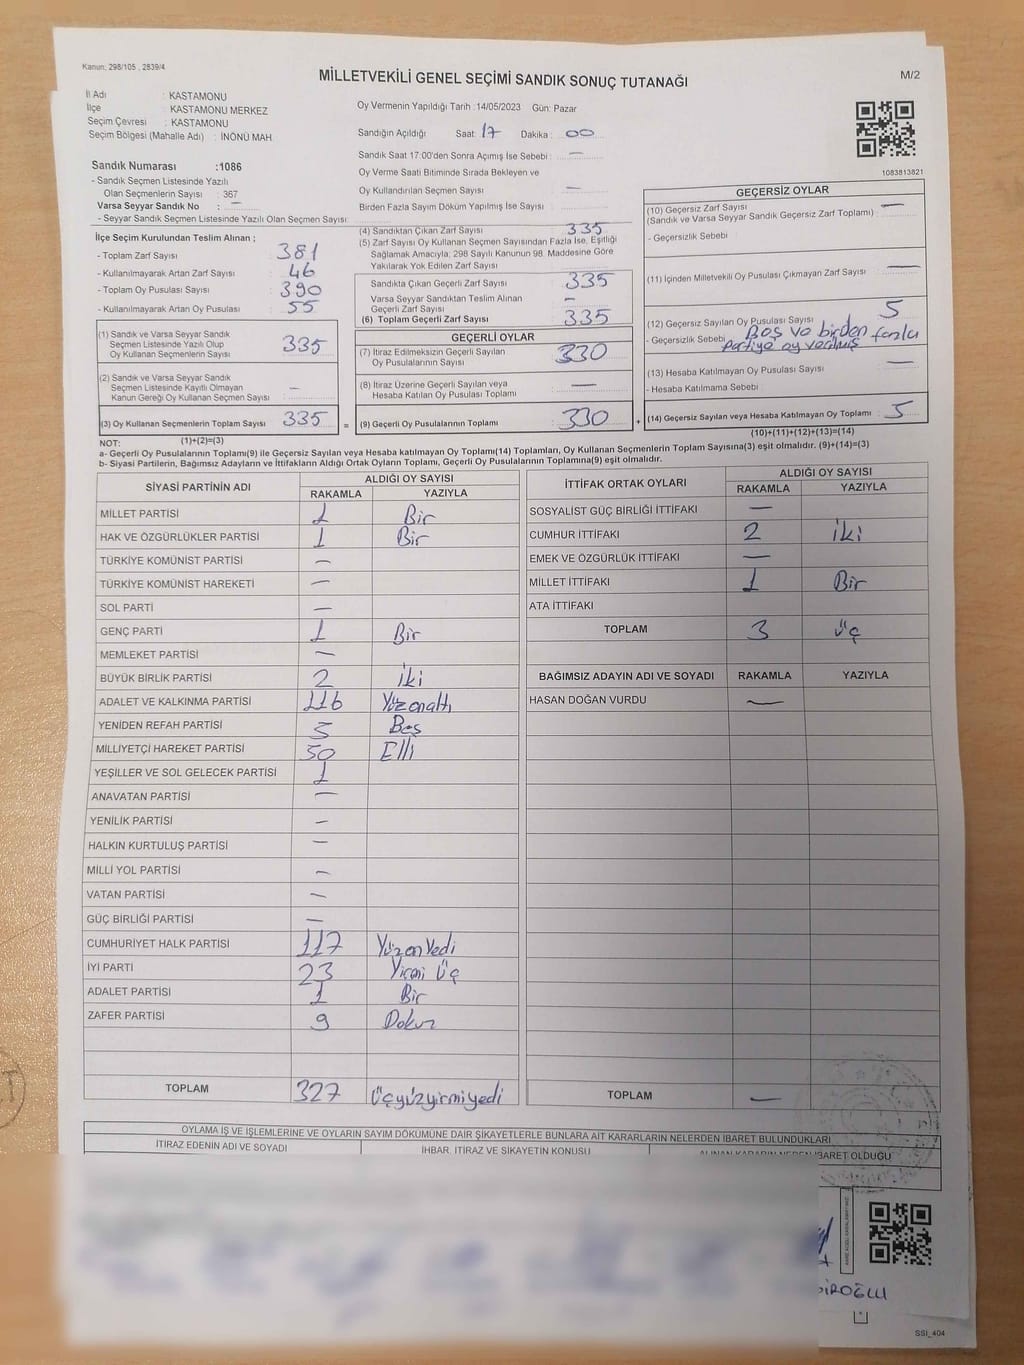 Kanun: 298/105 , 2839/4
MİLLETVEKİLİ GENEL SEÇİMİ SANDIK SONUÇ TUTANAĞI
M/2
İl Adı : KASTAMONU
İlçe : KASTAMONU MERKEZ
Seçim Çevresi : KASTAMONU
Seçim Bölgesi (Mahalle Adı) : İNÖNÜ MAH.
Sandık Numarası :1086
- Sandık Seçmen Listesinde Yazılı
Olan Seçmenlerin Sayısı : 367
Varsa Seyyar Sandık No : —
- Seyyar Sandık Seçmen Listesinde Yazılı Olan Seçmen Sayısı:
Oy Vermenin Yapıldığı Tarih :14/05/2023 Gün: Pazar
Sandığın Açıldığı Saat: 17 Dakika: 00
Sandık Saat 17:00'den Sonra Açımış İse Sebebi : —
Oy Verme Saati Bitiminde Sırada Bekleyen ve
Oy Kullandırılan Seçmen Sayısı : —
Birden Fazla Sayım Döküm Yapılmış İse Sayısı :
1083813821
İlçe Seçim Kurulundan Teslim Alınan ;
- Toplam Zarf Sayısı 381
- Kullanılmayarak Artan Zarf Sayısı 46
- Toplam Oy Pusulası Sayısı 390
- Kullanılmayarak Artan Oy Pusulası 55
(1) Sandık ve Varsa Seyyar Sandık
Seçmen Listesinde Yazılı Olup
Oy Kullanan Seçmenlerin Sayısı 335
(2) Sandık ve Varsa Seyyar Sandık
Seçmen Listesinde Kayıtlı Olmayan
Kanun Gereği Oy Kullanan Seçmen Sayısı : —
(3) Oy Kullanan Seçmenlerin Toplam Sayısı 335 =
(1)+(2)=(3)
(4) Sandıktan Çıkan Zarf Sayısı 335
(5) Zarf Sayısı Oy Kullanan Seçmen Sayısından Fazla İse, Eşitliği
Sağlamak Amacıyla; 298 Sayılı Kanunun 98. Maddesine Göre
Yakılarak Yok Edilen Zarf Sayısı :
Sandıkta Çıkan Geçerli Zarf Sayısı 335
Varsa Seyyar Sandıktan Teslim Alınan
Geçerli Zarf Sayısı : —
(6) Toplam Geçerli Zarf Sayısı 335
GEÇERLİ OYLAR
(7) İtiraz Edilmeksizin Geçerli Sayılan
Oy Pusulalarının Sayısı 330
(8) İtiraz Üzerine Geçerli Sayılan veya
Hesaba Katılan Oy Pusulası Toplamı —
(9) Geçerli Oy Pusulalarının Toplamı 330 +
GEÇERSİZ OYLAR
(10) Geçersiz Zarf Sayısı
(Sandık ve Varsa Seyyar Sandık Geçersiz Zarf Toplamı) : —
- Geçersizlik Sebebi :
(11) İçinden Milletvekili Oy Pusulası Çıkmayan Zarf Sayısı —
(12) Geçersiz Sayılan Oy Pusulası Sayısı 5
- Geçersizlik Sebebi Boş ve birden fazla
partiye oy verilmiş
(13) Hesaba Katılmayan Oy Pusulası Sayısı —
- Hesaba Katılmama Sebebi :
(14) Geçersiz Sayılan veya Hesaba Katılmayan Oy Toplamı 5
(10)+(11)+(12)+(13)=(14)
NOT:
a- Geçerli Oy Pusulasının Toplamı(9) ile Geçersiz Sayılan veya Hesaba katılmayan Oy Toplamı(14) Toplamları, Oy Kullanan Seçmenlerin Toplam Sayısına(3) eşit olmalıdır. (9)+(14)=(3)
b- Siyasi Partilerin, Bağımsız Adayların ve İttifakların Aldığı Ortak Oyların Toplamı, Geçerli Oy Pusulalarının Toplamına(9) eşit olmalıdır.
SİYASİ PARTİNİN ADI ALDIĞI OY SAYISI
RAKAMLA YAZIYLA
MİLLET PARTİSİ 1 Bir
HAK VE ÖZGÜRLÜKLER PARTİSİ 1 Bir
TÜRKİYE KOMÜNİST PARTİSİ —
TÜRKİYE KOMÜNİST HAREKETİ —
SOL PARTİ —
GENÇ PARTİ 1 Bir
MEMLEKET PARTİSİ —
BÜYÜK BİRLİK PARTİSİ 2 iki
ADALET VE KALKINMA PARTİSİ 116 Yüzonaltı
YENİDEN REFAH PARTİSİ 5 Beş
MİLLİYETÇİ HAREKET PARTİSİ 50 Elli
YEŞİLLER VE SOL GELECEK PARTİSİ 1
ANAVATAN PARTİSİ —
YENİLİK PARTİSİ —
HALKIN KURTULUŞ PARTİSİ —
MİLLİ YOL PARTİSİ —
VATAN PARTİSİ —
GÜÇ BİRLİĞİ PARTİSİ —
CUMHURİYET HALK PARTİSİ 117 Yüzon Yedi
İYİ PARTİ 23 Yirmi Üç
ADALET PARTİSİ 1 Bir
ZAFER PARTİSİ 9 Dokuz
TOPLAM 327 Üçyüzyirmiyedi
İTTİFAK ORTAK OYLARI ALDIĞI OY SAYISI
RAKAMLA YAZIYLA
SOSYALİST GÜÇ BİRLİĞİ İTTİFAKI —
CUMHUR İTTİFAKI 2 iki
EMEK VE ÖZGÜRLÜK İTTİFAKI —
MİLLET İTTİFAKI 1 Bir
ATA İTTİFAKI
TOPLAM 3 üç
BAĞIMSIZ ADAYIN ADI VE SOYADI RAKAMLA YAZIYLA
HASAN DOĞAN VURDU —
TOPLAM —
OYLAMA İŞ VE İŞLEMLERİNE VE OYLARIN SAYIM DÖKÜMÜNE DAİR ŞİKAYETLERLE BUNLARA AİT KARARLARIN NELERDEN İBARET BULUNDUKLARI
İTİRAZ EDENİN ADI VE SOYADI İHBAR, İTİRAZ VE ŞİKAYETİN KONUSU ALINAN KARARIN NEDEN İBARET OLDUĞU
SSI_404